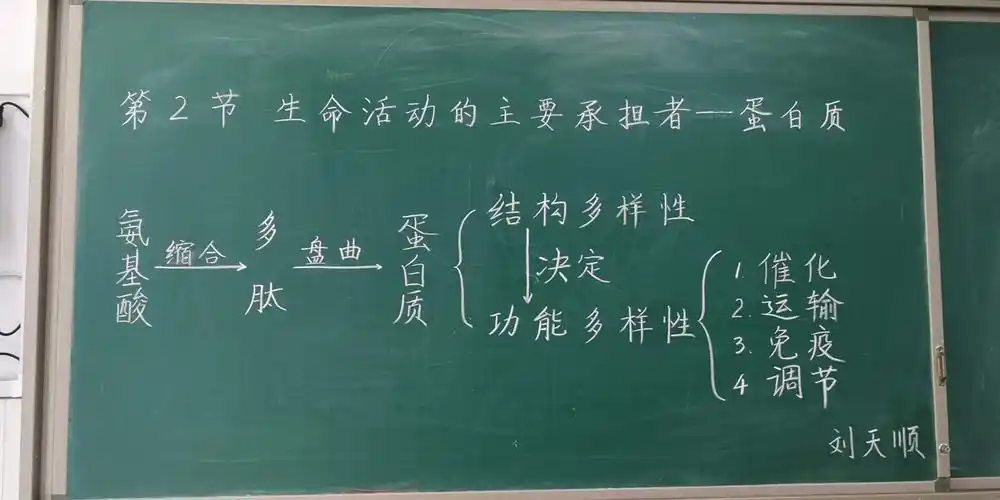 第2节 生命活动的主要承担者—蛋白质
氨基酸 缩合 多肽 盘曲 蛋白质
结构多样性
决定
功能多样性
1. 催化
2. 运输
3. 免疫
4 调节
刘天顺